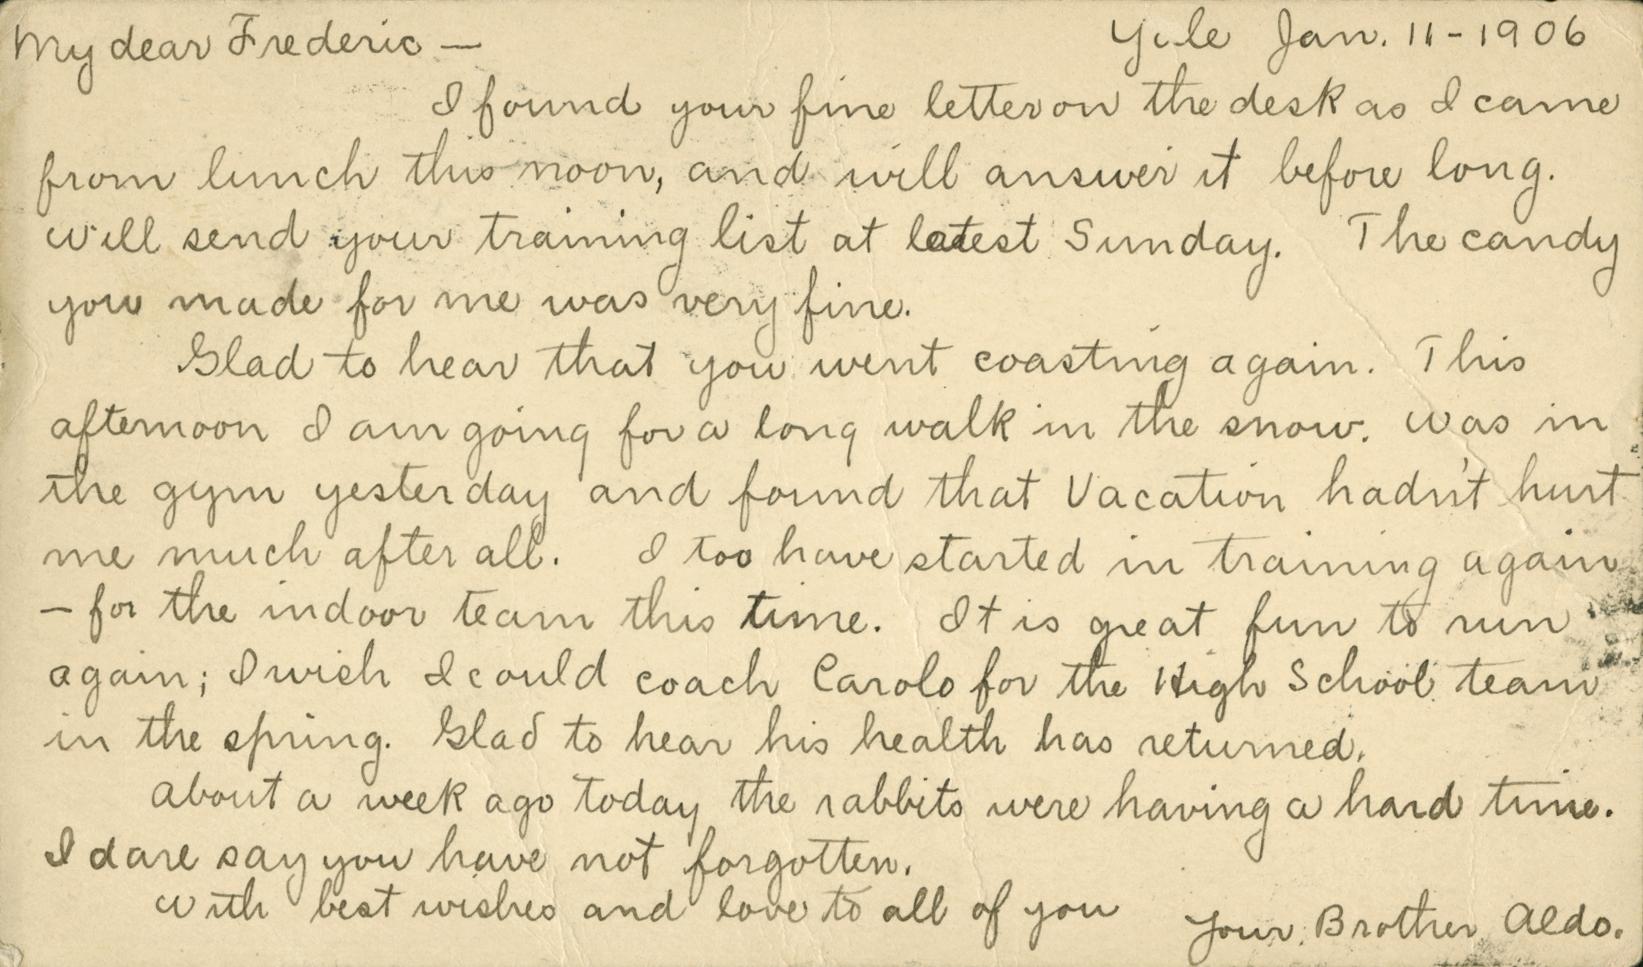 My dear Frederic — Yale Jan. 11-1906
I found your fine letter on the desk as I came
from lunch this noon, and will answer it before long.
Will send your training list at latest Sunday. The candy
you made for me was very fine.
Glad to hear that you went coasting again. This
afternoon I am going for a long walk in the snow. Was in
the gym yesterday and found that Vacation hadn't hurt
me much after all. I too have started in training again
— for the indoor team this time. It is great fun to run
again; I wish I could coach Carolo for the High School team
in the spring. Glad to hear his health has returned.
About a week ago today the rabbits were having a hard time.
I dare say you have not forgotten.
With best wishes and love to all of you Your Brother Aldo.